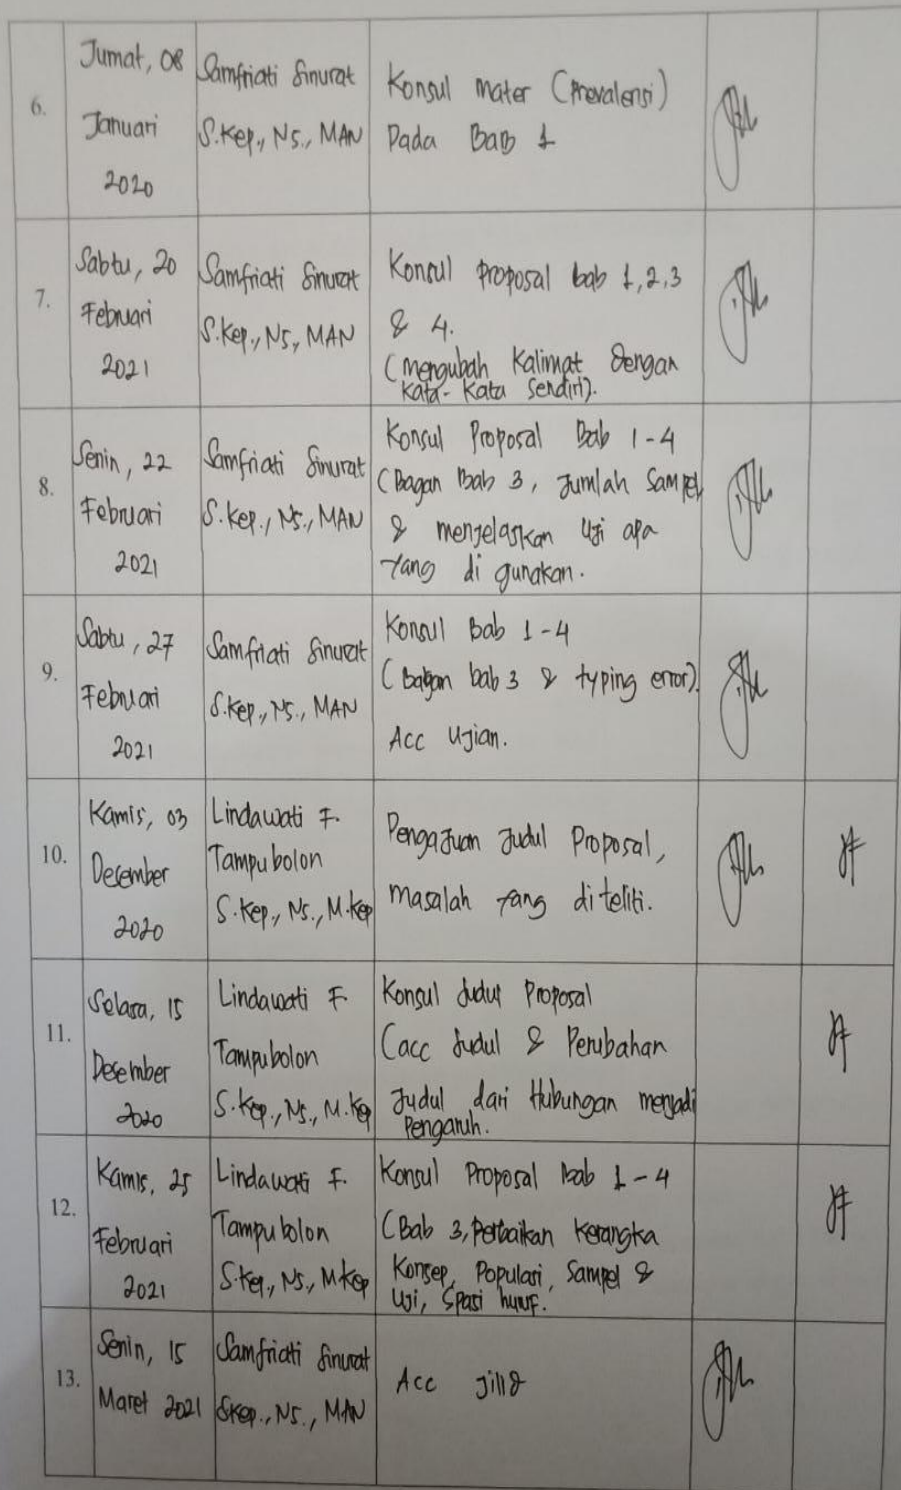 6.
Jumat, 08
Januari
2020
Samfriati Sinurat
S.Kep., Ns., MAN
Konsul mater (Prevalensi)
Pada Bab 1
7.
Sabtu, 20
Februari
2021
Samfriati Sinurat
S.Kep., Ns, MAN
Konsul proposal bab 1,2,3
& 4.
(mengubah Kalimat dengan
kata-kata sendiri).
8.
Senin, 22
Februari
2021
Samfriati Sinurat
S.Kep., Ns., MAN
Konsul Proposal Bab 1-4
(Bagan Bab 3, Jumlah Sampel
& menjelaskan Uji apa
yang di gunakan.
9.
Sabtu, 27
Februari
2021
Samfriati Sinurat
S.Kep., Ns., MAN
Konsul Bab 1-4
(Bagan bab 3 & typing error).
Acc Ujian.
10.
Kamis, 03
Desember
2020
Lindawati F.
Tampubolon
S.Kep., Ns., M.Kep
Pengajuan Judul Proposal,
masalah yang di teliti.
11.
Selasa, 15
Desember
2020
Lindawati F.
Tampubolon
S.Kep., Ns., M.Kep
Konsul Judul Proposal
(acc Judul & Perubahan
Judul dari Hubungan menjadi
Pengaruh.
12.
Kamis, 25
Februari
2021
Lindawati F.
Tampubolon
S.Kep., Ns., M.Kep
Konsul Proposal Bab 1-4
(Bab 3, perbaikan Kerangka
Konsep, Populasi, Sampel &
Uji, Spasi huruf.
13.
Senin, 15
Maret 2021
Samfriati Sinurat
S.Kep., Ns., MAN
Acc Jilid